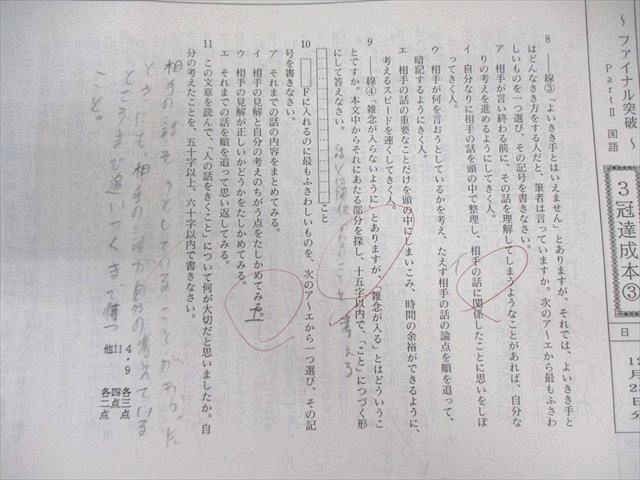 ～ファイナル突破～
PartⅡ 国語
3冠達成本③
日
12月25日分
8 ――線③「よいきき手とはいえません」とありますが、それでは、よいきき手と
はどんなきき方をする人だと、筆者は言っていますか。次のア～エから最もふさわ
しいものを一つ選び、その記号を書きなさい。
ア 相手が言い終わる前に、その話を理解してしまうようなことがあれば、自分な
りの考えを進めるようにしてきく人。
イ 自分なりに相手の話を頭の中で整理し、相手の話に関係したことに思いをしぼ
ってきく人。
ウ 相手が何を言おうとしているかを考え、たえず相手の話の論点を順を追って、
暗記するようにきく人。
エ 相手の話の重要なことだけを頭の中にしまいこみ、時間の余裕ができるように、
考えるスピードを速くしてきく人。
9 ――線④「雑念が入らないように」とありますが、「雑念が入る」とはどういうこ
とですか。本文中からそれにあたる部分を探し、十五字以内で、「こと」につづく形
にして答えなさい。
話とは関係のないことを考える
こと
10 Fに入れるのに最もふさわしいものを、次のア～エから一つ選び、その記
号を書きなさい。
ア それまでの話の内容をまとめてみる。
イ 相手の見解と自分の考えのちがう点をたしかめてみる。
ウ 相手の見解が正しいかどうかをたしかめてみる。
エ それまでの話を順を追って思い返してみる。
11 この文章を読んで、「人の話をきくこと」について何が大切だと思いましたか。自
分の考えたことを、五十字以上、六十字以内で書きなさい。
相手の話そうとしていることがわかった
ときにも、相手の話が自分の考えている
ところまで追いつくまで待つ
こと。
4・9 各三点
11 四点
他 各二点